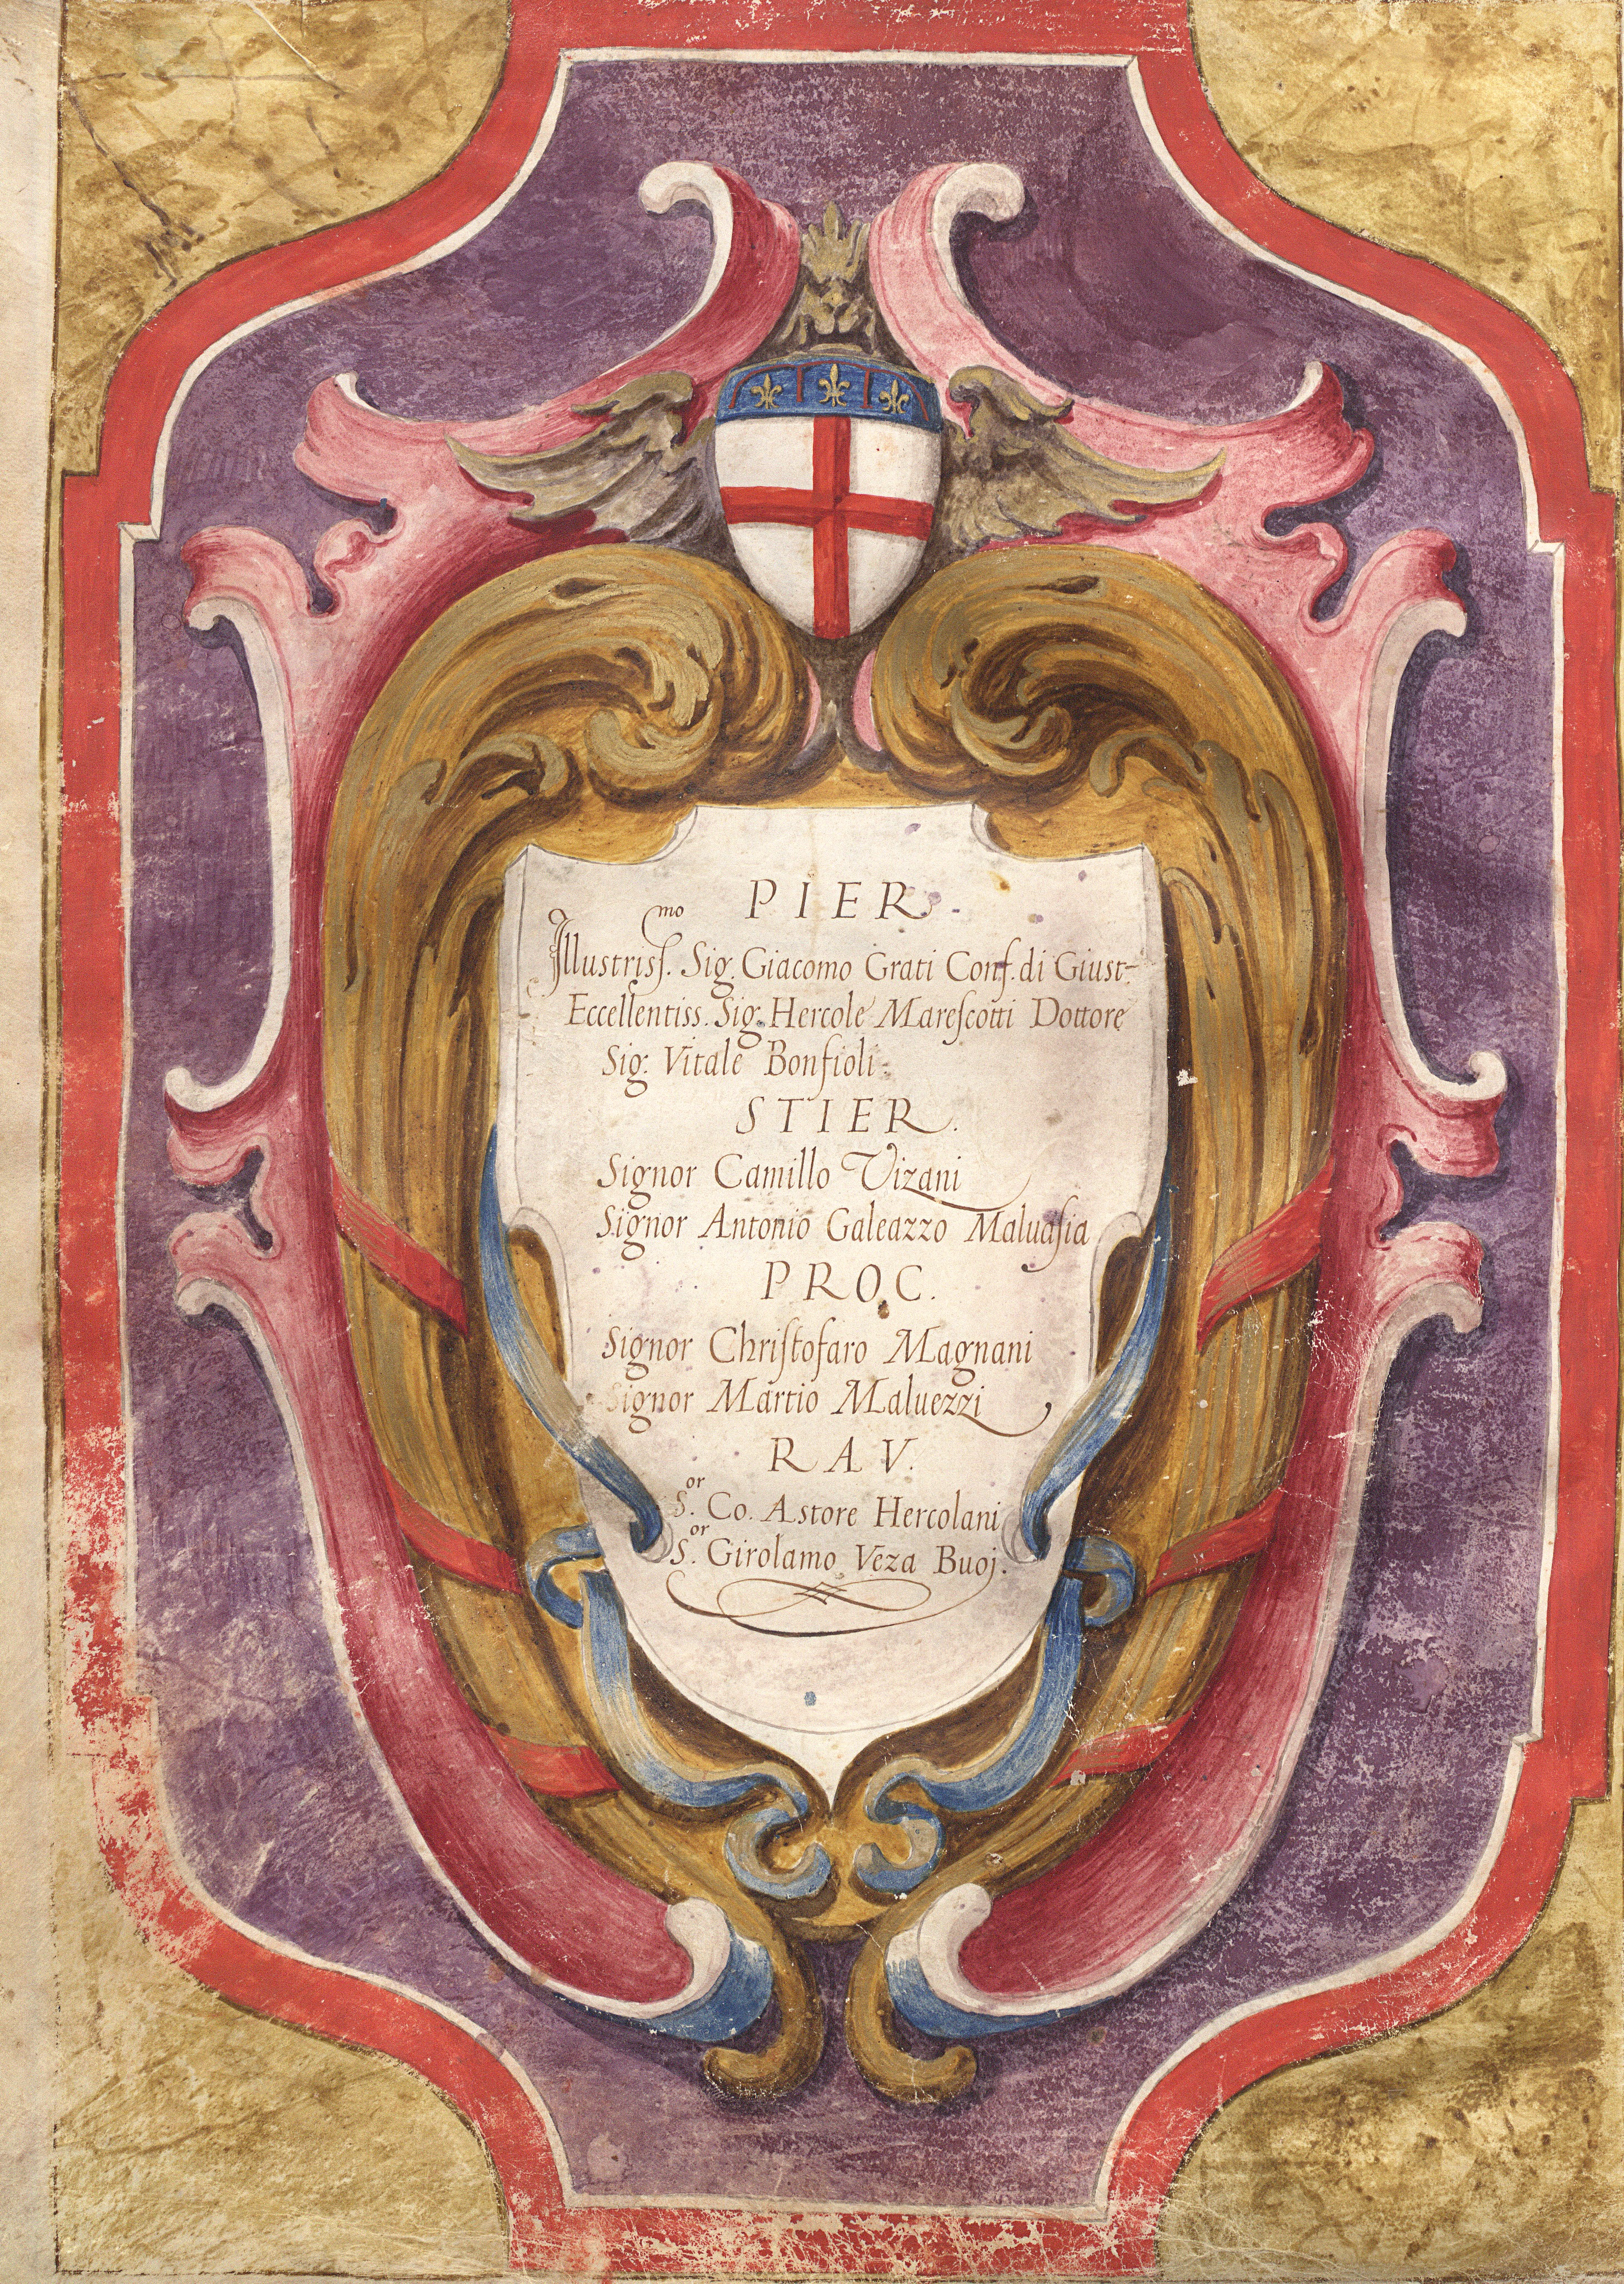 PIER.
Illustriss.mo Sig. Giacomo Grati Conf. di Giust.
Eccellentiss. Sig. Hercole Mareſcotti Dottore
Sig. Vitale Bonfioli.
STIER.
Signor Camillo Vizani
Signor Antonio Galeazzo Maluaſia
PROC.
Signor Chriſtofaro Magnani
Signor Martio Maluezzi
RAV.
S.or Co. Astore Hercolani
S.or Girolamo Veza Buoj.